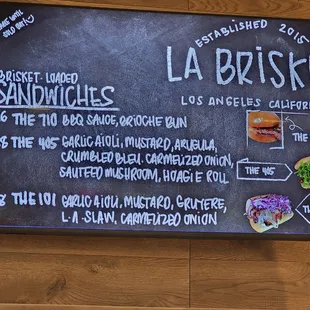 SOLD OUT!
ESTABLISHED 2015
LA BRISK
LOS ANGELES CALIFOR
BRISKET-LOADED
SANDWICHES
6 THE 710 BBQ SAUCE, BRIOCHE BUN
8 THE 405 GARLIC AIOLI, MUSTARD, ARUGULA,
CRUMBLED BLEU. CARMELIZED ONION,
SAUTEED MUSHROOM, HOAGIE ROLL
8 THE 101 GARLIC AIOLI, MUSTARD, GRUYERE,
L·A·SLAW, CARMELIZED ONION
THE
THE 405
THE